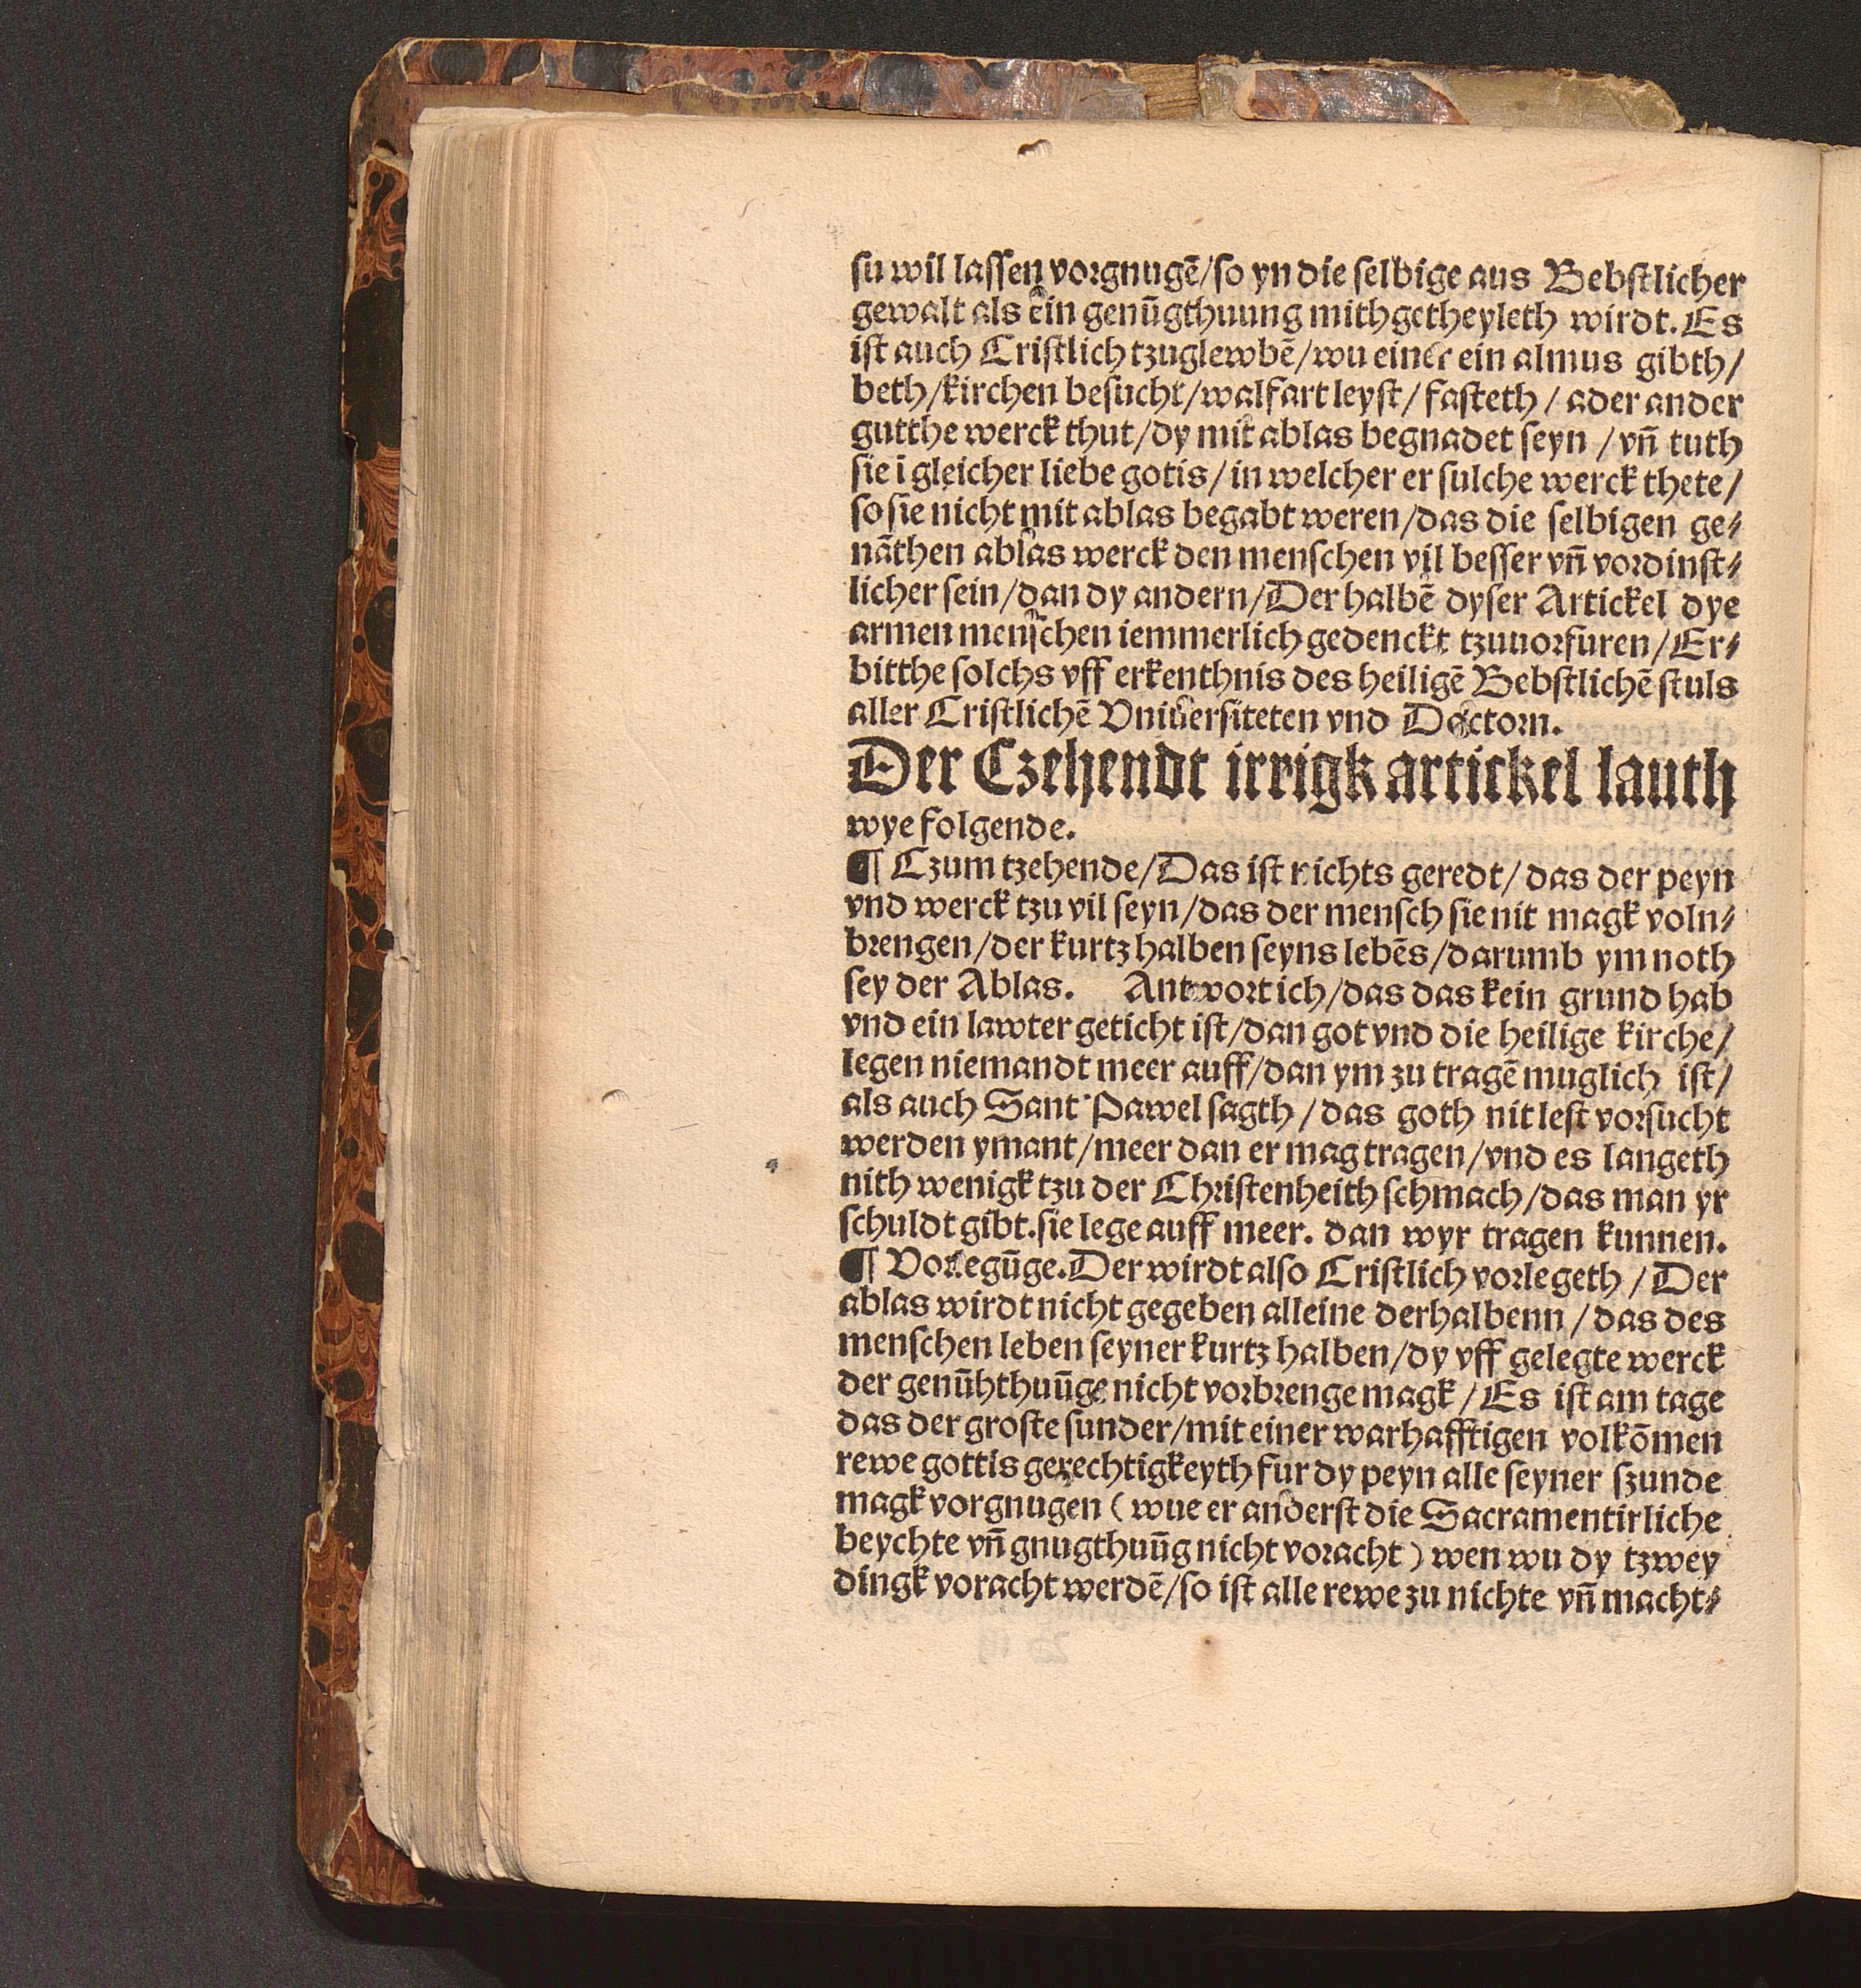 su wil lassen vorgnugē/so yn die selbige aus Bebstlicher
gewalt als ein genūgthuung mithgetheyleth wirdt. Es
ist auch Cristlich tzuglewbē/wu einer ein almus gibth/
beth/kirchen besucht/walfart leyst/fasteth/ader ander
gutthe werck thut/dy mit ablas begnadet seyn/vñ tuth
sie ī gleicher liebe gotis/in welcher er sulche werck thete/
so sie nicht mit ablas begabt weren/das die selbigen ge⸗
nāthen ablas werck den menschen vil besser vñ vordinst⸗
licher sein/dan dy andern/Der halbē dyser Artickel dye
armen menschen iemmerlich gedenckt tzuuorfuren/Er⸗
bitthe solchs vff erkenthnis des heiligē Bebstlichē stuls
aller Cristlichē Vniuersiteten vnd Doctorn.
Der Czehendt irrigk artickel lauth
wye folgende.
¶ Czum tzehende/Das ist nichts geredt/das der peyn
vnd werck tzu vil seyn/das der mensch sie nit magk voln⸗
brengen/der kurtz halben seyns lebēs/darumb ym noth
sey der Ablas. Antwort ich/das das kein grund hab
vnd ein lawter geticht ist/dan got vnd die heilige kirche/
legen niemandt meer auff/dan ym zu tragē muglich ist/
als auch Sant Pawel sagth/das goth nit lest vorsucht
werden ymant/meer dan er mag tragen/vnd es langeth
nith wenigk tzu der Christenheith schmach/das man yr
schuldt gibt.sie lege auff meer. dan wyr tragen kunnen.
¶ Vorlegūge.Der wirdt also Cristlich vorlegeth/Der
ablas wirdt nicht gegeben alleine derhalbenn/das des
menschen leben seyner kurtz halben/dy vff gelegte werck
der genūhthuūge nicht vorbrenge magk/Es ist am tage
das der groste sunder/mit einer warhafftigen volkōmen
rewe gottis gerechtigkeyth fur dy peyn alle seyner szunde
magk vorgnugen (wue er anderst die Sacramentirliche
beychte vñ gnugthuūg nicht voracht) wen wu dy tzwey
dingk voracht werdē/so ist alle rewe zu nichte vñ macht⸗